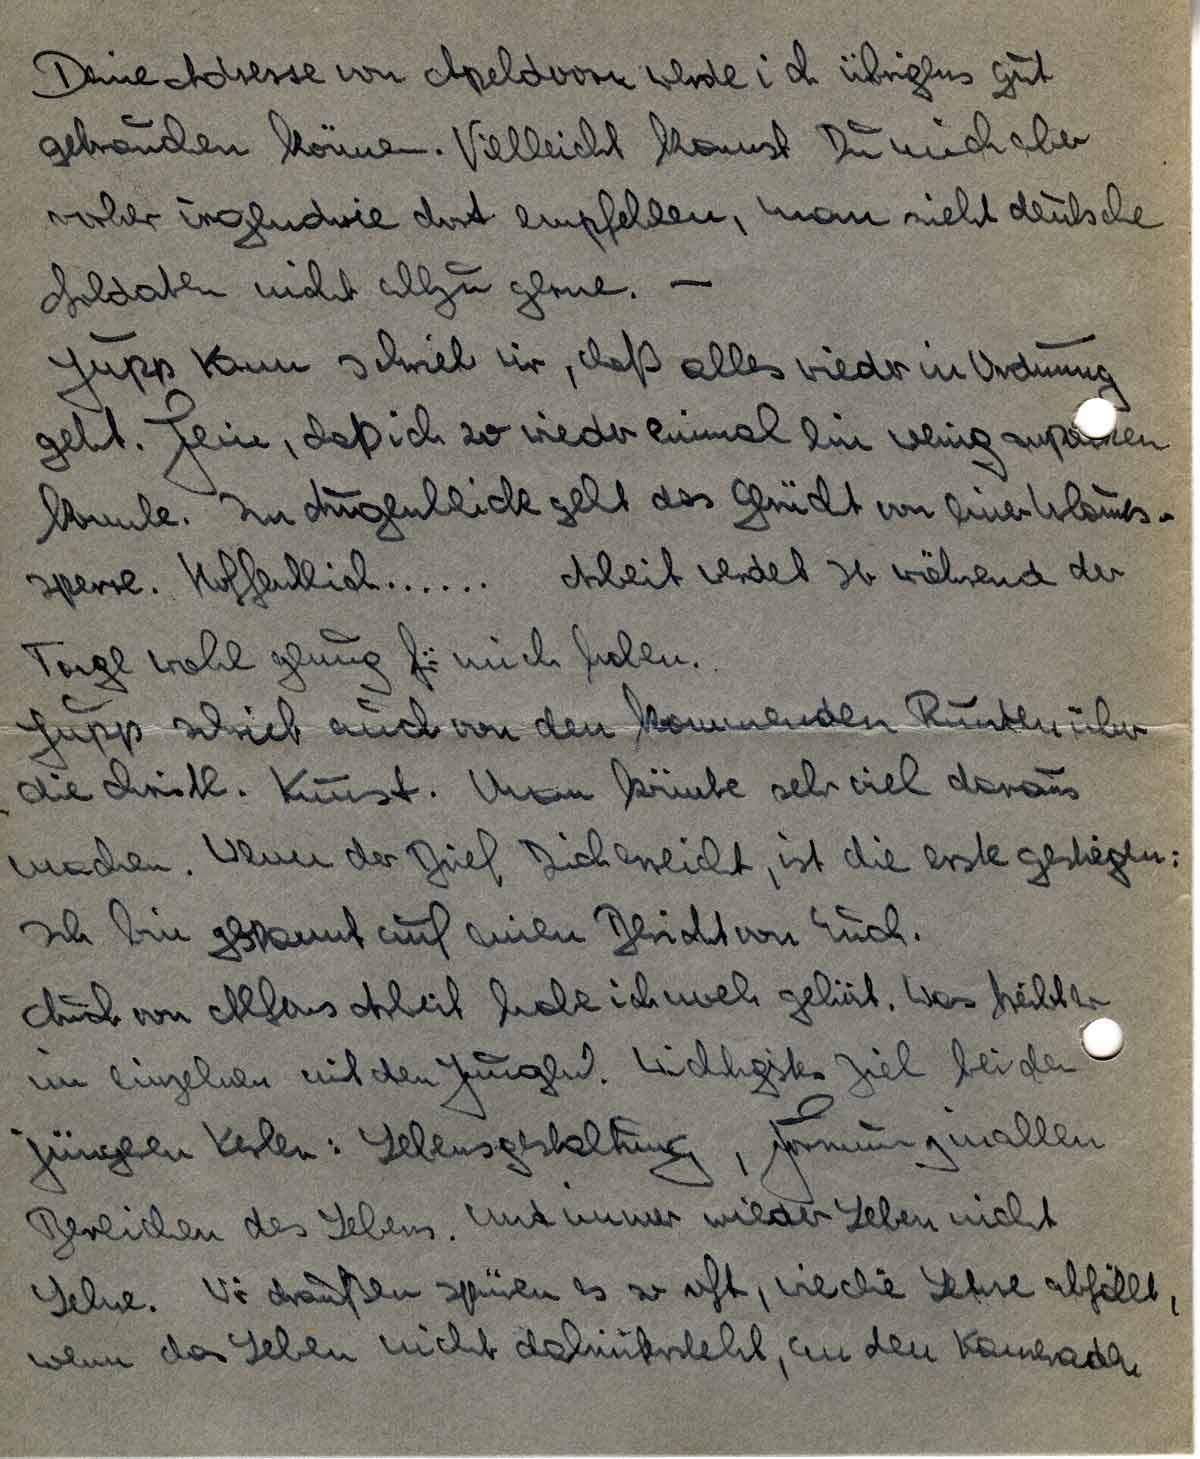 Deine Adresse von Apeldoorn werde ich übrigens gut
gebrauchen können. Vielleicht kannst Du mich aber
vorher irgendwie dort empfehlen, man sieht deutsche
Soldaten nicht allzu gerne. —
Jupp Kann schrieb mir, daß alles wieder in Ordnung
geht. Fein, daß ich so wieder einmal ein wenig anpacken
konnte. Im Augenblick geht das Gerücht von einer Urlaubs-
sperre. Hoffentlich...... Arbeit werdet Ihr während der
Tage wohl genug für mich haben.
Jupp schrieb auch von den kommenden Runden über
die christl. Kunst. Man könnte sehr viel daraus
machen. Wenn der Brief Dich erreicht, ist die erste gestiegen:
Ich bin gespannt auf einen Bericht von Euch.
Auch von Alfons Arbeit habe ich noch gehört. Was treibt er
im einzelnen mit den Jungen? Wichtigstes Ziel bei den
jüngeren Kerlen: Lebensgestaltung, Formung in allen
Bereichen des Lebens. Und immer wieder Leben nicht
Lehre. Wir draußen spüren es so oft, wie die Lehre abfällt,
wenn das Leben nicht dahintersteht, an den Kameraden